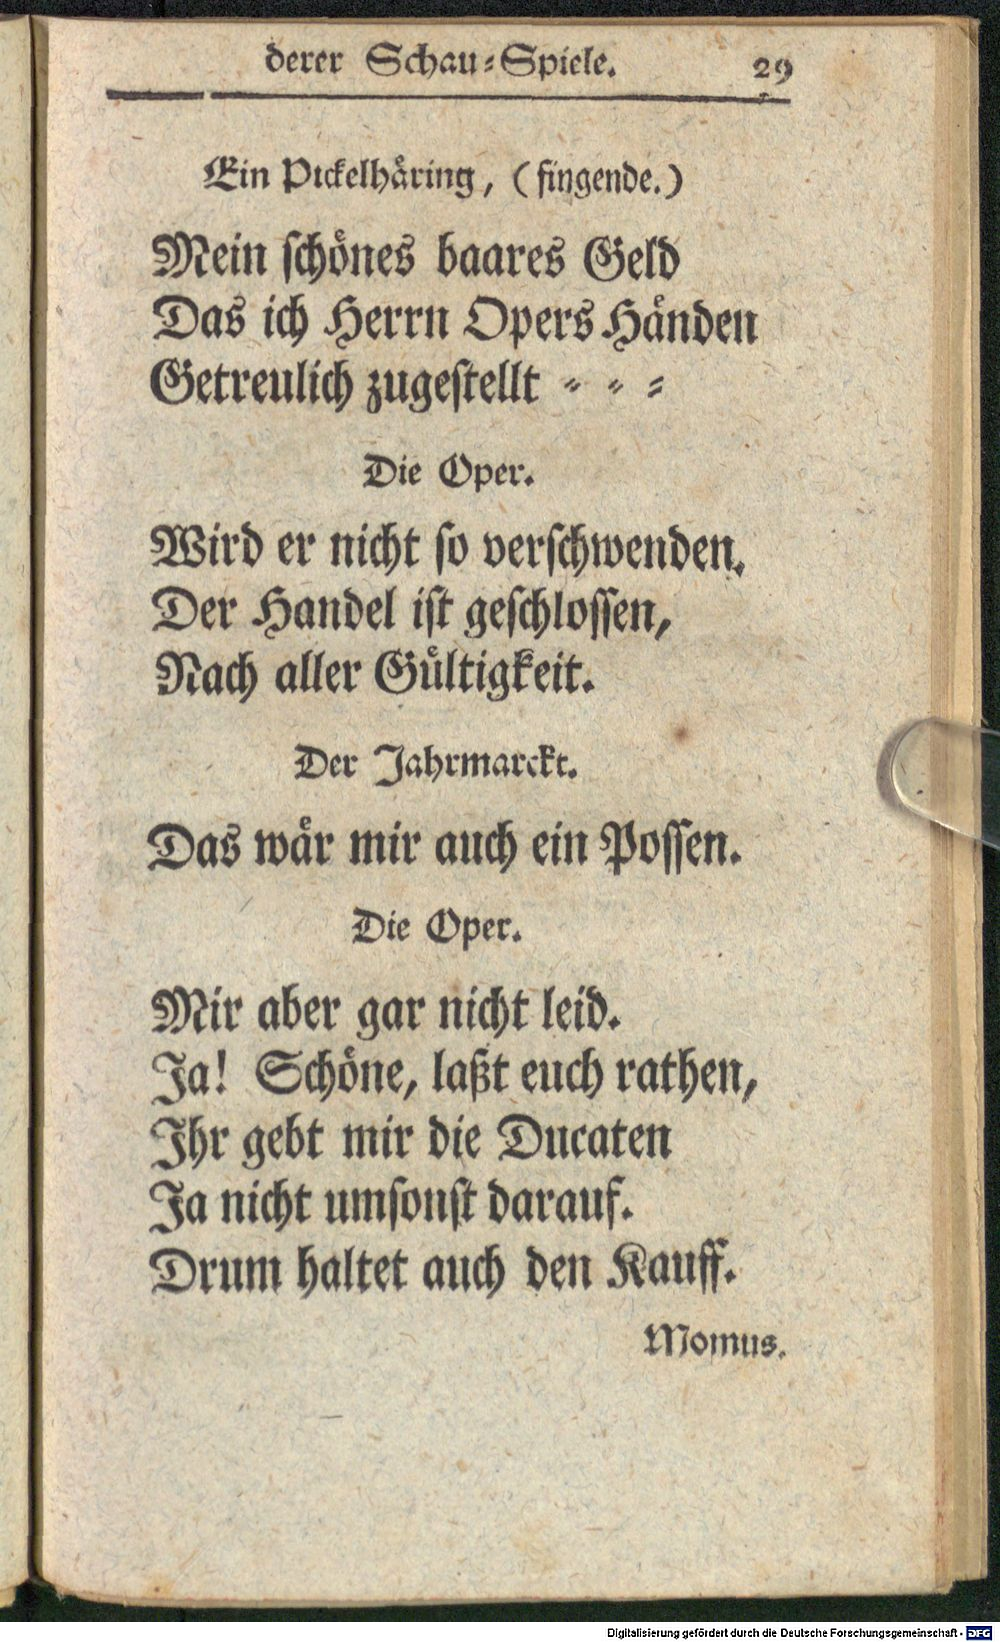 derer Schau⸗Spiele. 29
Ein Pickelhåring, (singende.)
Mein schönes baares Geld
Das ich Herrn Opers Hånden
Getreulich zugestellt ⸗ ⸗ ⸗
Die Oper.
Wird er nicht so verschwenden.
Der Handel ist geschlossen,
Nach aller Gůltigkeit.
Der Jahrmarckt.
Das wår mir auch ein Possen.
Die Oper.
Mir aber gar nicht leid.
Ja! Schöne, laßt euch rathen,
Ihr gebt mir die Ducaten
Ja nicht umsonst darauf.
Drum haltet auch den Kauff.
Momus.
Digitalisierung gefördert durch die Deutsche Forschungsgemeinschaft - DFG